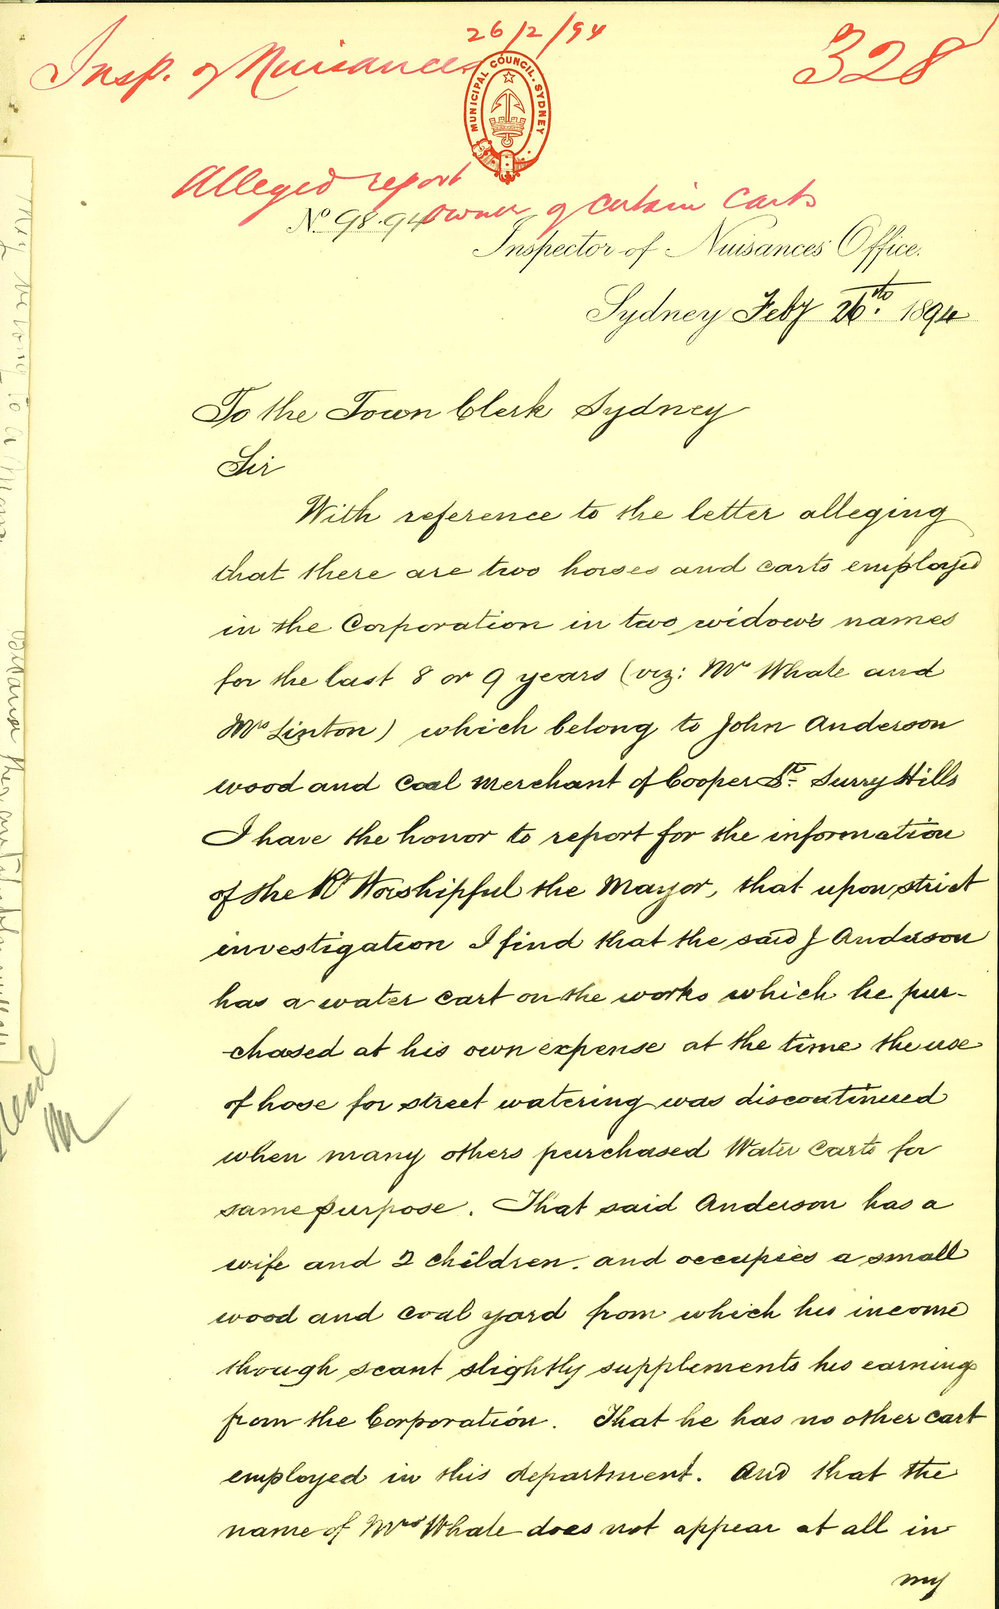 26/2/94
Insp. of Nuisances
328
MUNICIPAL COUNCIL. SYDNEY
Alleged report
owner of certain carts
No. 98.94
Inspector of Nuisances Office.
Sydney Feby 26th. 1894
To the Town Clerk Sydney
Sir
With reference to the letter alleging
that there are two horses and carts employed
in the Corporation in two widow's names
for the last 8 or 9 years (viz: Mrs Whale and
Mrs Linton) which belong to John Anderson
wood and Coal Merchant of Cooper St. Surry Hills
I have the honor to report for the information
of the Rt Worshipful the Mayor, that upon strict
investigation I find that the said J Anderson
has a water cart on the works which he pur-
chased at his own expense at the time the use
of hose for street watering was discontinued
when many others purchased Water Carts for
same purpose. That said Anderson has a
wife and 2 children. and occupies a small
wood and coal yard from which his income
though scant slightly supplements his earnings
from the Corporation. That he has no other cart
employed in this department. And that the
name of Mrs Whale does not appear at all in
my
read